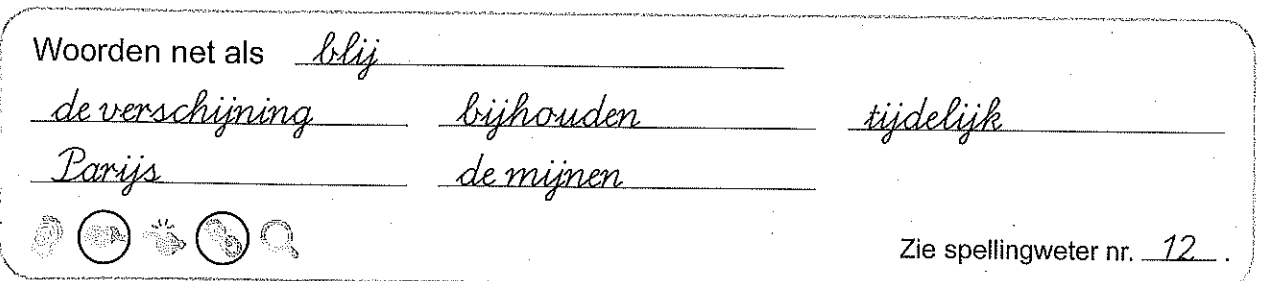 Woorden net als blij
de verschijning bijhouden tijdelijk
Parijs de mijnen
Zie spellingweter nr. 12.